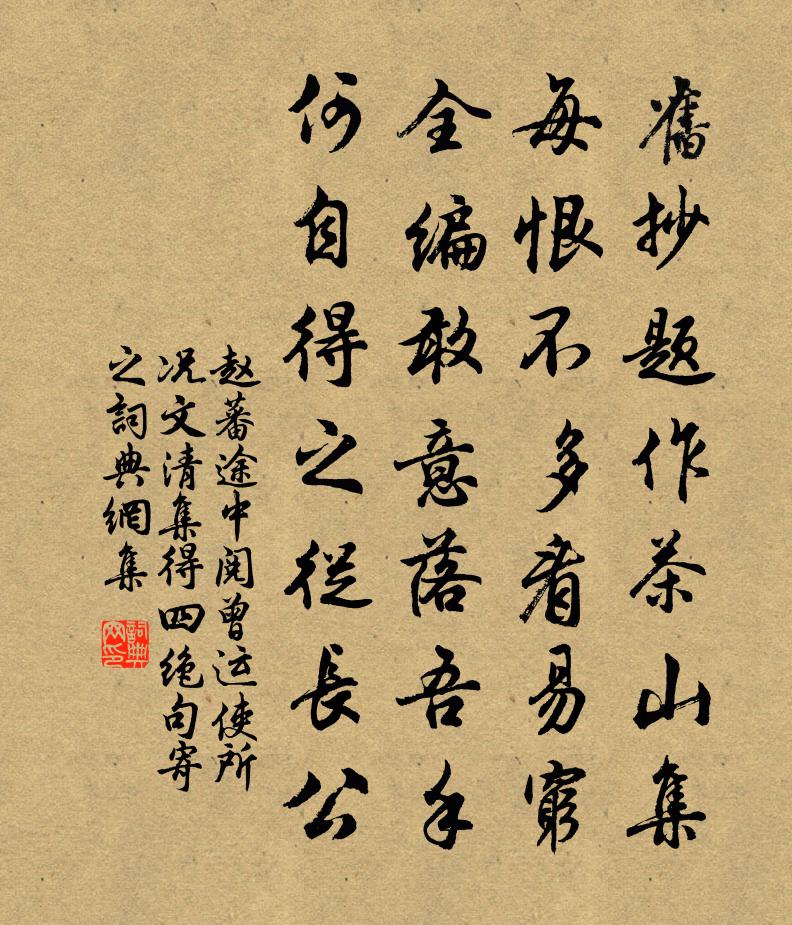 舊抄题作茶山集
每恨不多看易窮
全编敢意落吾手
何自得之從長公
赵蕃途中阅曾运使所
况文清集得四绝句寄
之詞典網集
詞典网印